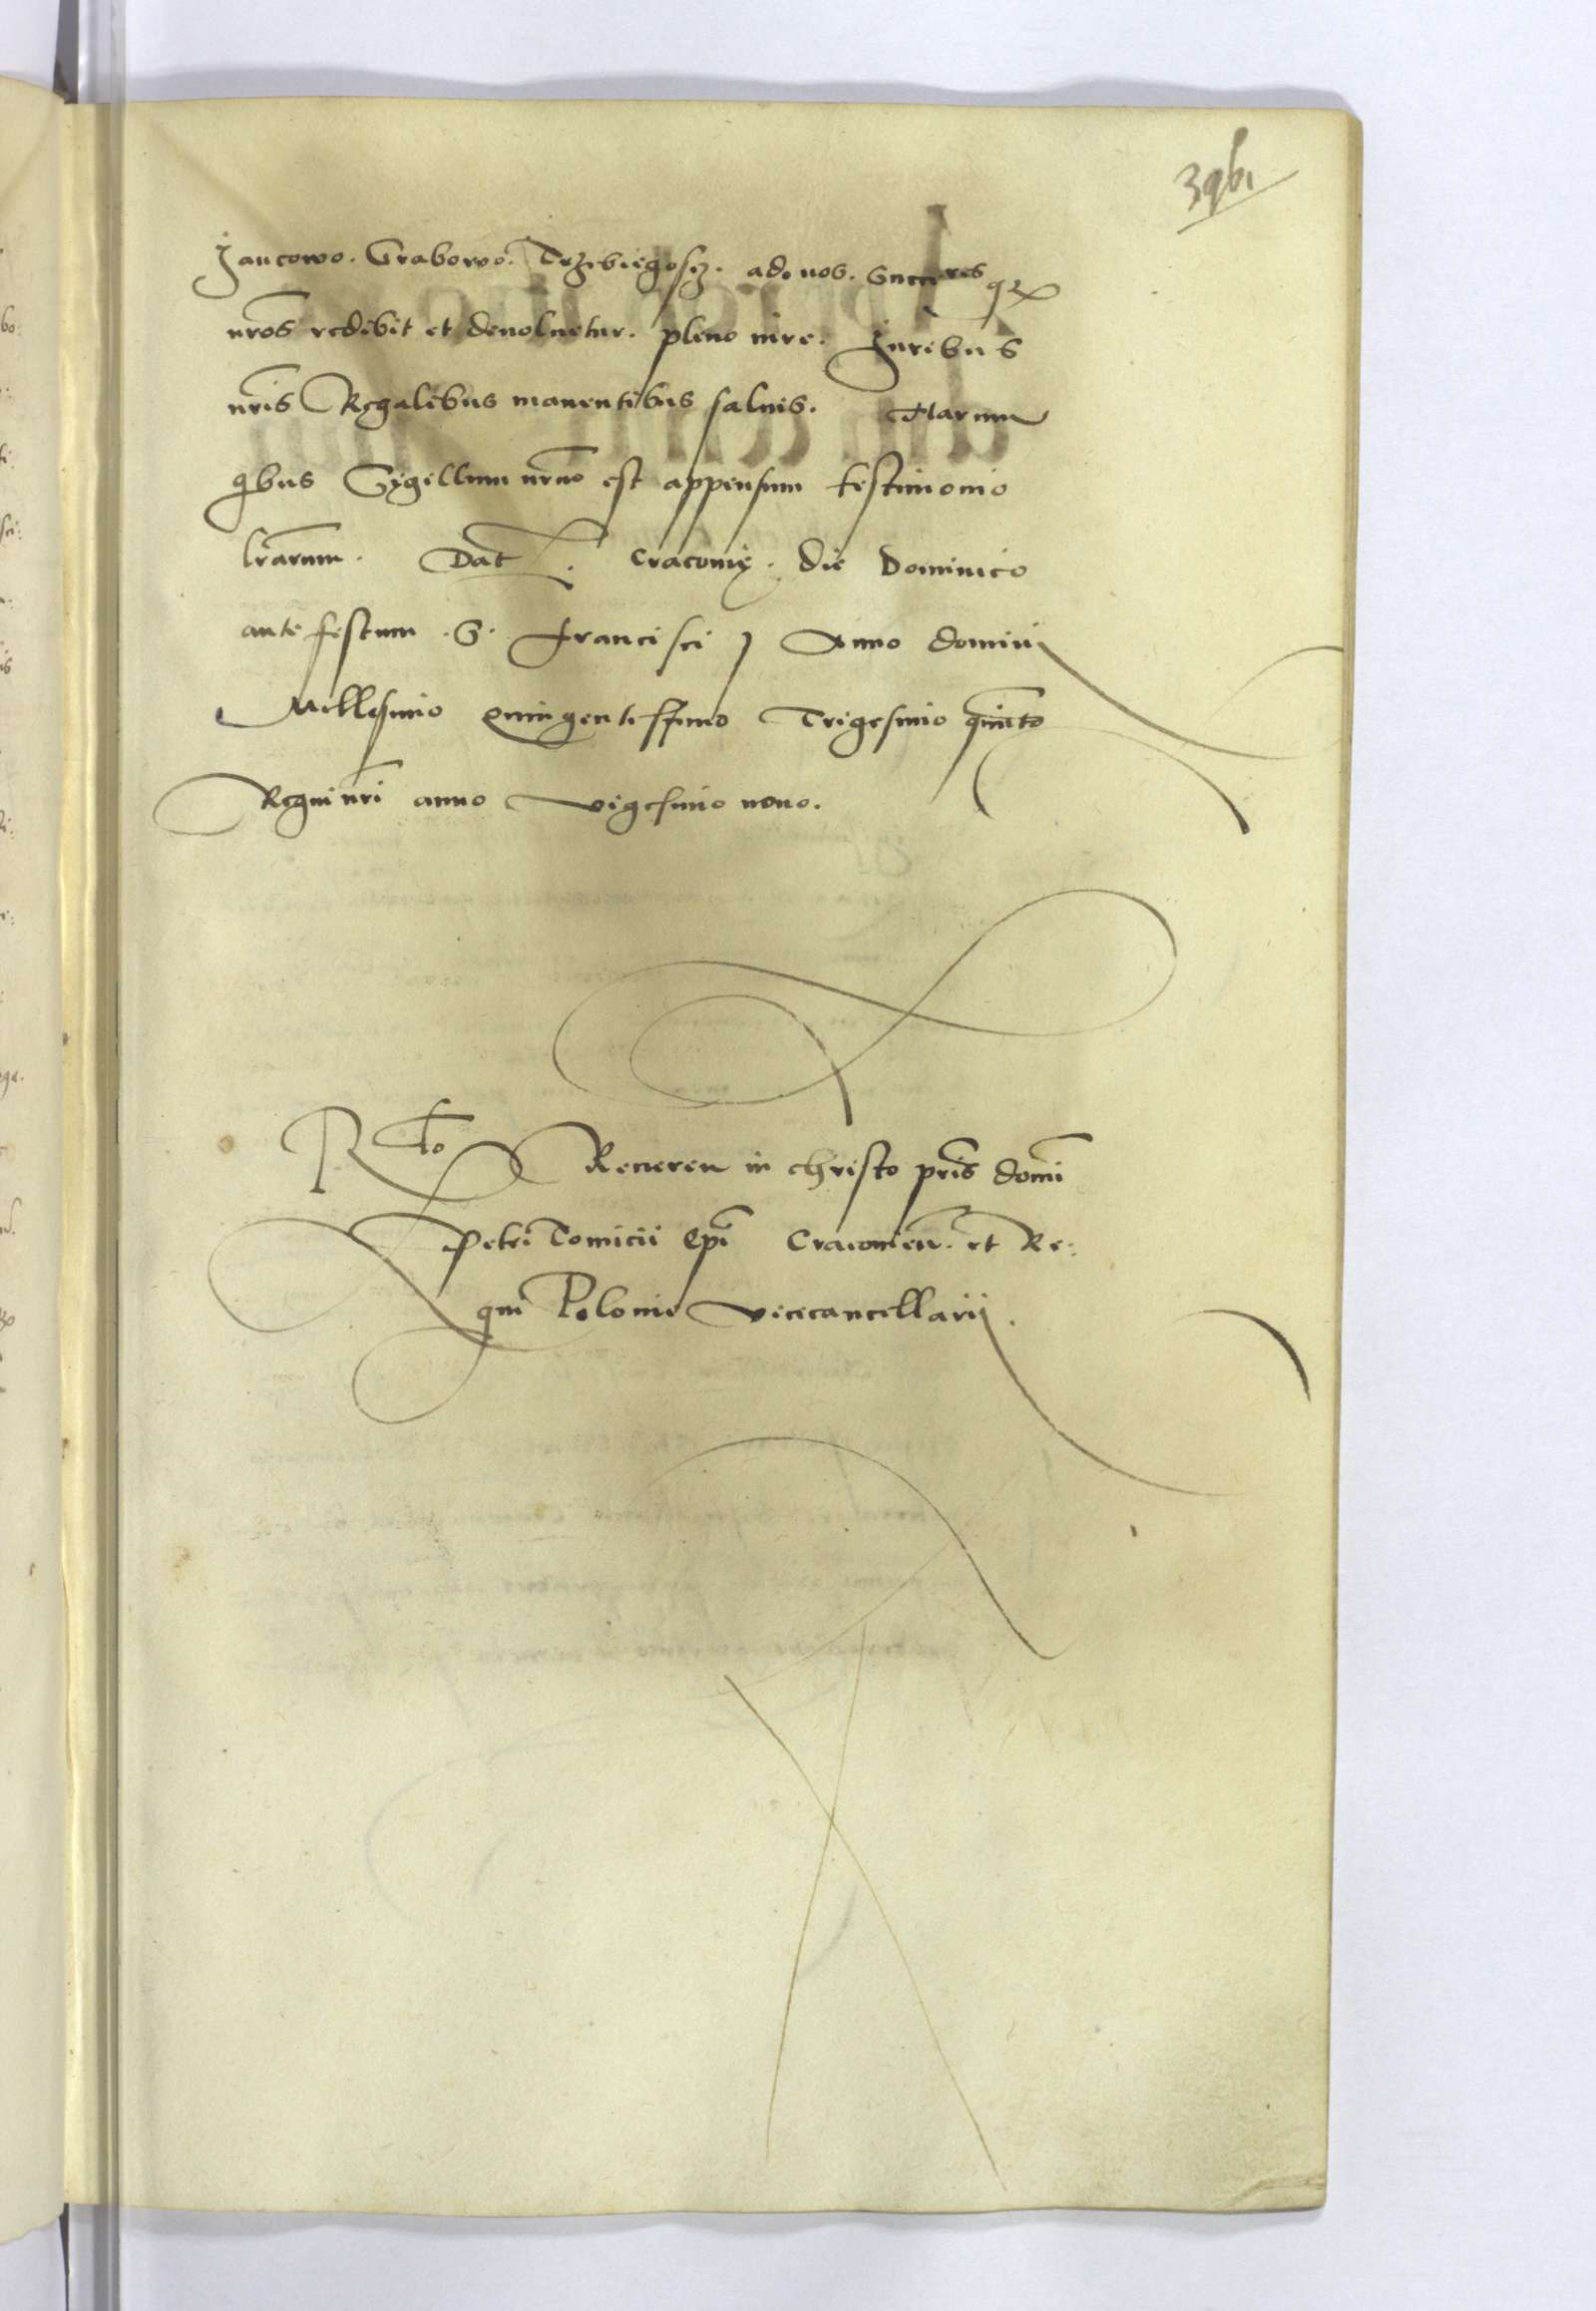 Jancowo. Grabowo. Trzebiegosz. ad nos. Succres qz
nros redibit et devoluetur. pleno iure. Juribus
nris Regalibus manentibus saluis. Harum
qbus Sygillum nrum est appensum testimonio
lrarum. Dat. Cracouię. die Dominico
ante festum .S. Francisci Anno domini
Millesimo Quingentessimo Trigesimo quinto
Regni nri anno vigesimo nono.
Rto Reueren in christo pris domi
Petri Tomicii Epi Cracouien. et Re:
gni Polonie vicecancellarij.